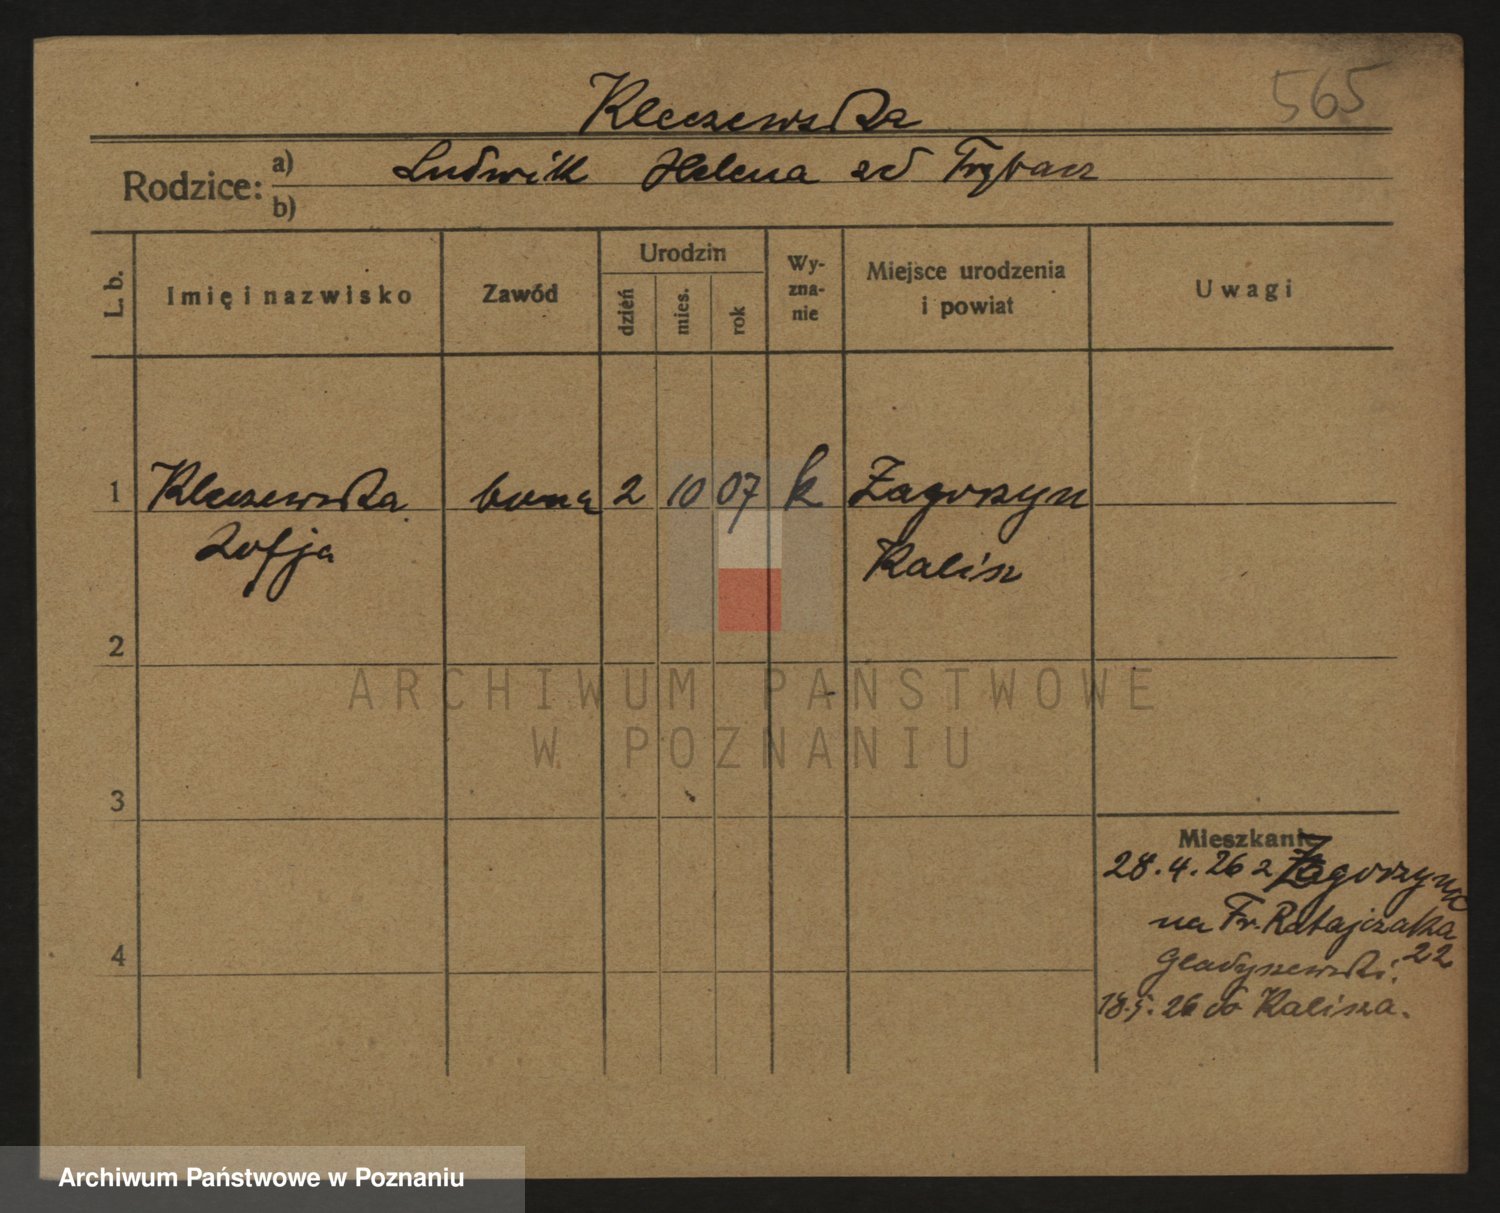 565
Kleczewska
Rodzice: a) Ludwik Helena zd Trybacz
b)
L. b. Imię i nazwisko Zawód Urodzin dzień mies. rok Wy-zna-nie Miejsce urodzenia i powiat Uwagi
1 Kleczewska bona 2 10 07 k Zagorzyn
Zofja Kalisz
2
ARCHIWUM PAŃSTWOWE
W POZNANIU
3
Mieszkanie
28.4.26 z Zagorzyna
na Fr. Ratajczaka
22
Gladyszewski.
4
18.5.26 do Kalisza.
Archiwum Państwowe w Poznaniu